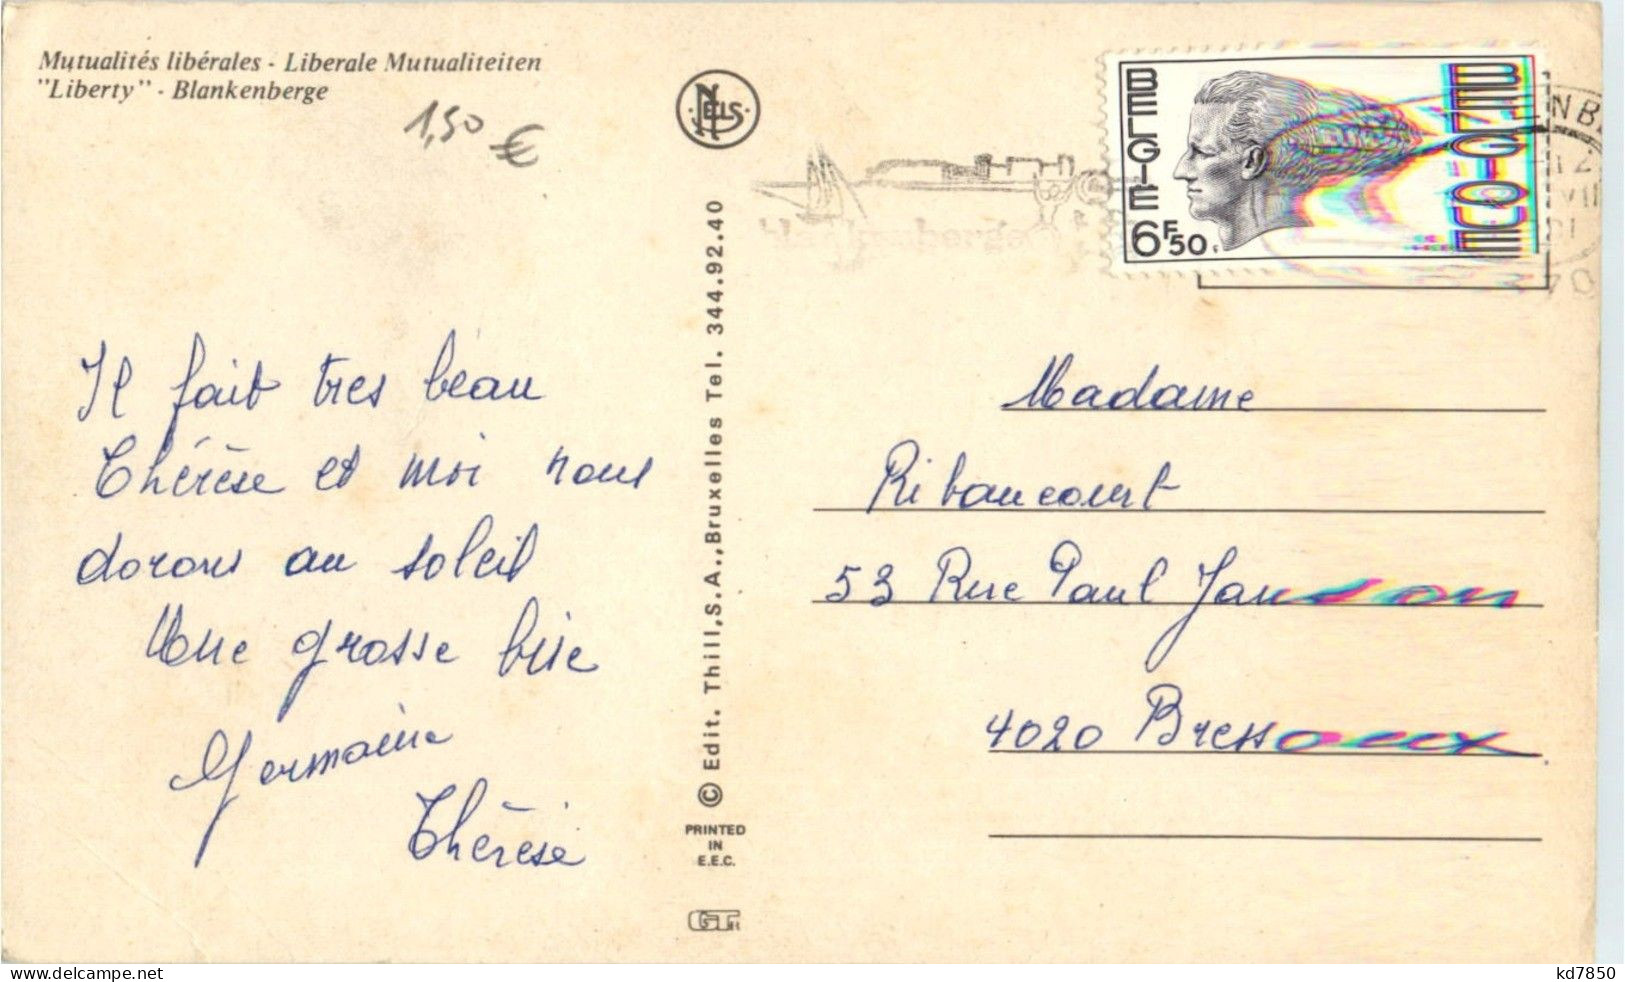 Mutualités libérales - Liberale Mutualiteiten
"Liberty" - Blankenberge
1,50 €
NELS
BELGIE
BELGIQUE
6F50
blankenberge
Il fait tres beau
Thérèse et moi nous
dorons au soleil
Une grosse bise
Germaine
Thérèse
© Edit. Thill, S.A., Bruxelles Tel. 344.92.40
PRINTED
IN
E.E.C.
GT
Madame
Ribaucourt
53 Rue Paul Janson
4020 Bressoux
www.delcampe.net
kd7850